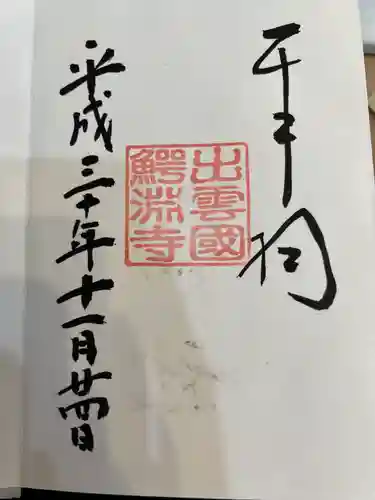 奉拝
出雲國
鰐淵寺
平成三十年十一月廿四日